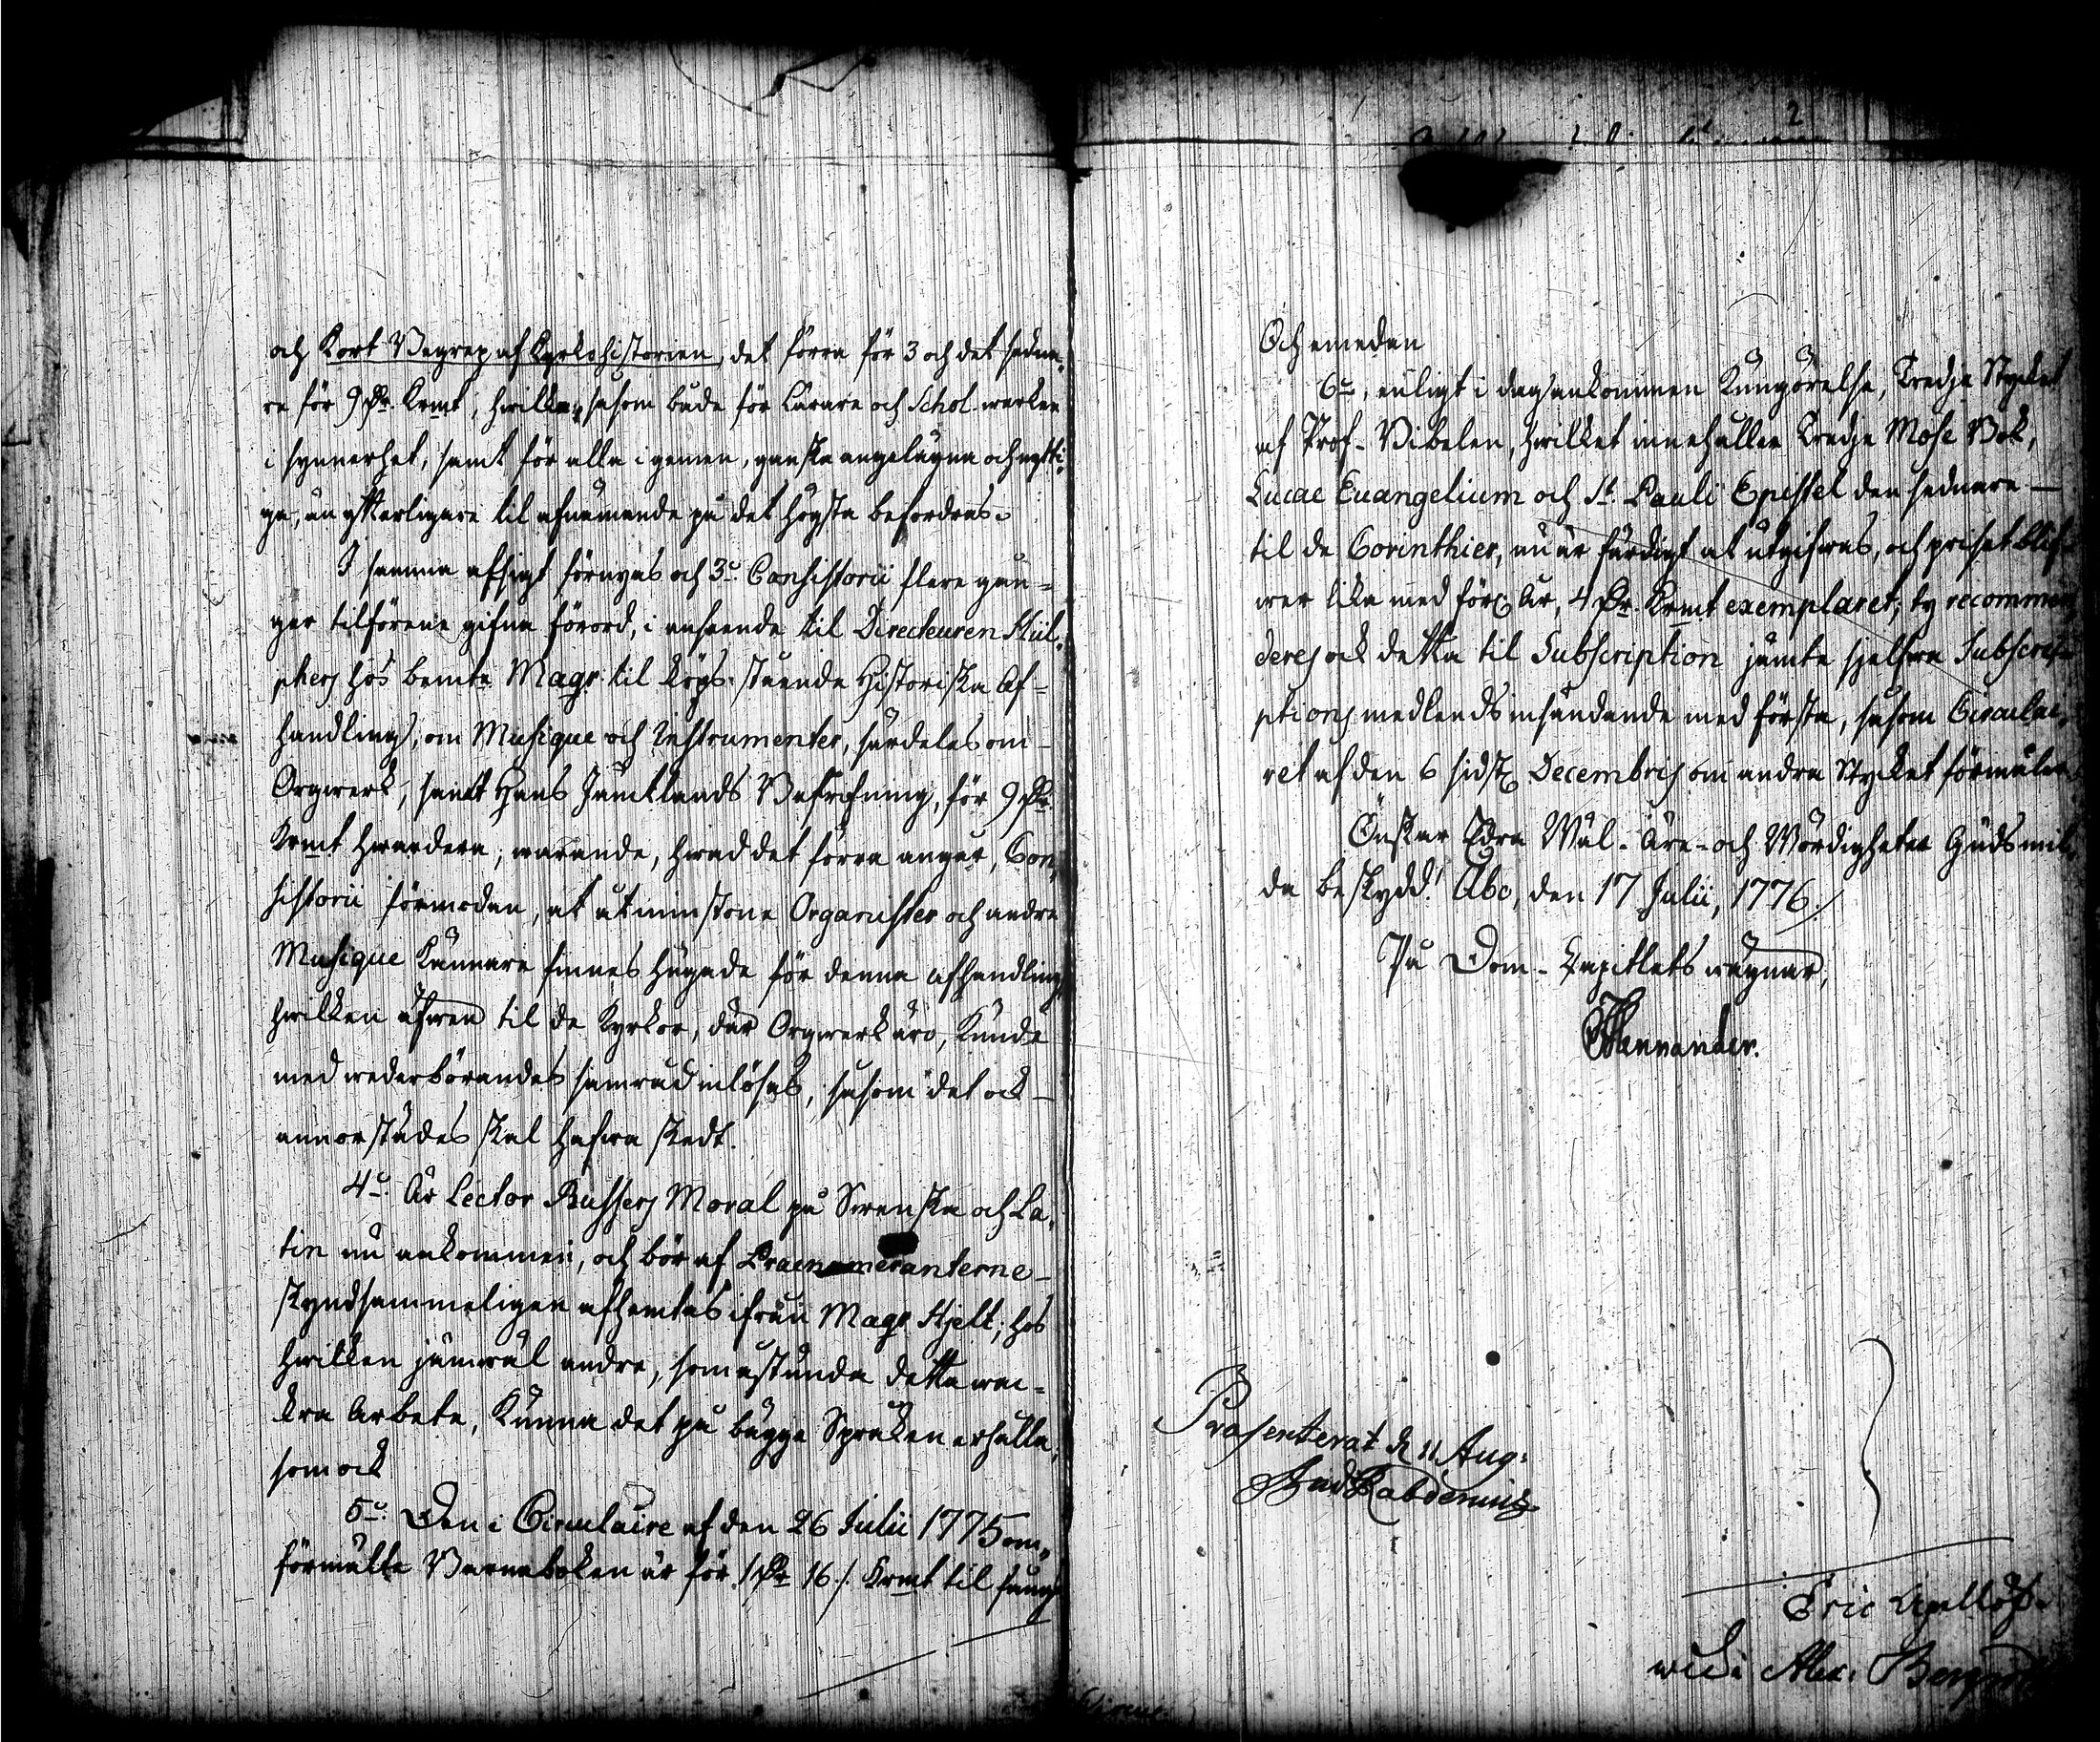 och Kort Begrep af Kyrkohistorien, det förra för 3 och det sedna„
re för 9 Plr. Krmt, hwilka, såsom både för Lärare och Schol. wärken
i synnerhet, samt för alla i gemen, ganska angelägna och nytti„
ga, än ytterligare til afnämande på det högsta befordras.
I samma afsigt förnyas och 3:o Consistorii flere gån=
ger tilförene gifna förord, i anseende til Directeuren Hül„
phers hos bemte Magr. til köps stående Historiska Af=
handling, om Musique och Instrumenter, särdeles om
Orgwerk, samt Hans Jämtlands Beskrifning, för 9 Plr.
Krmt hwardera, warande, hwad det förra angår, Con„
sistorii förmodan, at åtminstone Organister och andre
Musique Kännare finnes hugade för denna afhandling,
hwilken äfwen til de Kyrkor, där Orgwerk äro, kunde
med wederbörandes samråd inlösas, såsom det ock
annorstädes skal hafwa skedt.
4:o Är Lector Bussers Moral på Swenska och La„
tin nu ankommen, och bör af Praenumeranterne
skyndsammeligen afhemtas ifrån Magr. Hjelt; hos
hwilken jämwäl andre, som åstunda detta wac=
kra Arbete, kunna det på bägge Språken erhålla,
som ock
5:o Den i Circulaire af den 26 Julii 1775 om„
förmälte Barnaboken är för 1 Plr 16 /. Krmt til fångs
2
Och emedan
6:o, enligt i dag ankommen Kungörelse, Tredje Stycket
af Prof-Bibelen, hwilket innehåller Tredje Mose Bok,
Lucae Euangelium och St. Pauli Epistel den sednare
til de Corinthier, nu är färdigt at utgifwas, och priset blif„
wer lika med förra År, 4 Plr. Krmt exemplaret; ty recommen„
deres ock detta til Subscription jämte sjelfwa Subscri„
ptions medlends insändande med första, såsom Circulai„
ret af den 6 sidstl. Decembris om andra Stycket förmäler.
Önskar Edra Wäl-Äre- och Wördigheter Guds mil„
da beskydd! Åbo, den 17 Julii, 1776.
På Dom-Capitlets wägnar,
CFMennander.
Præsenterat d. 11 Aug:
And
Eric
widi Alex: